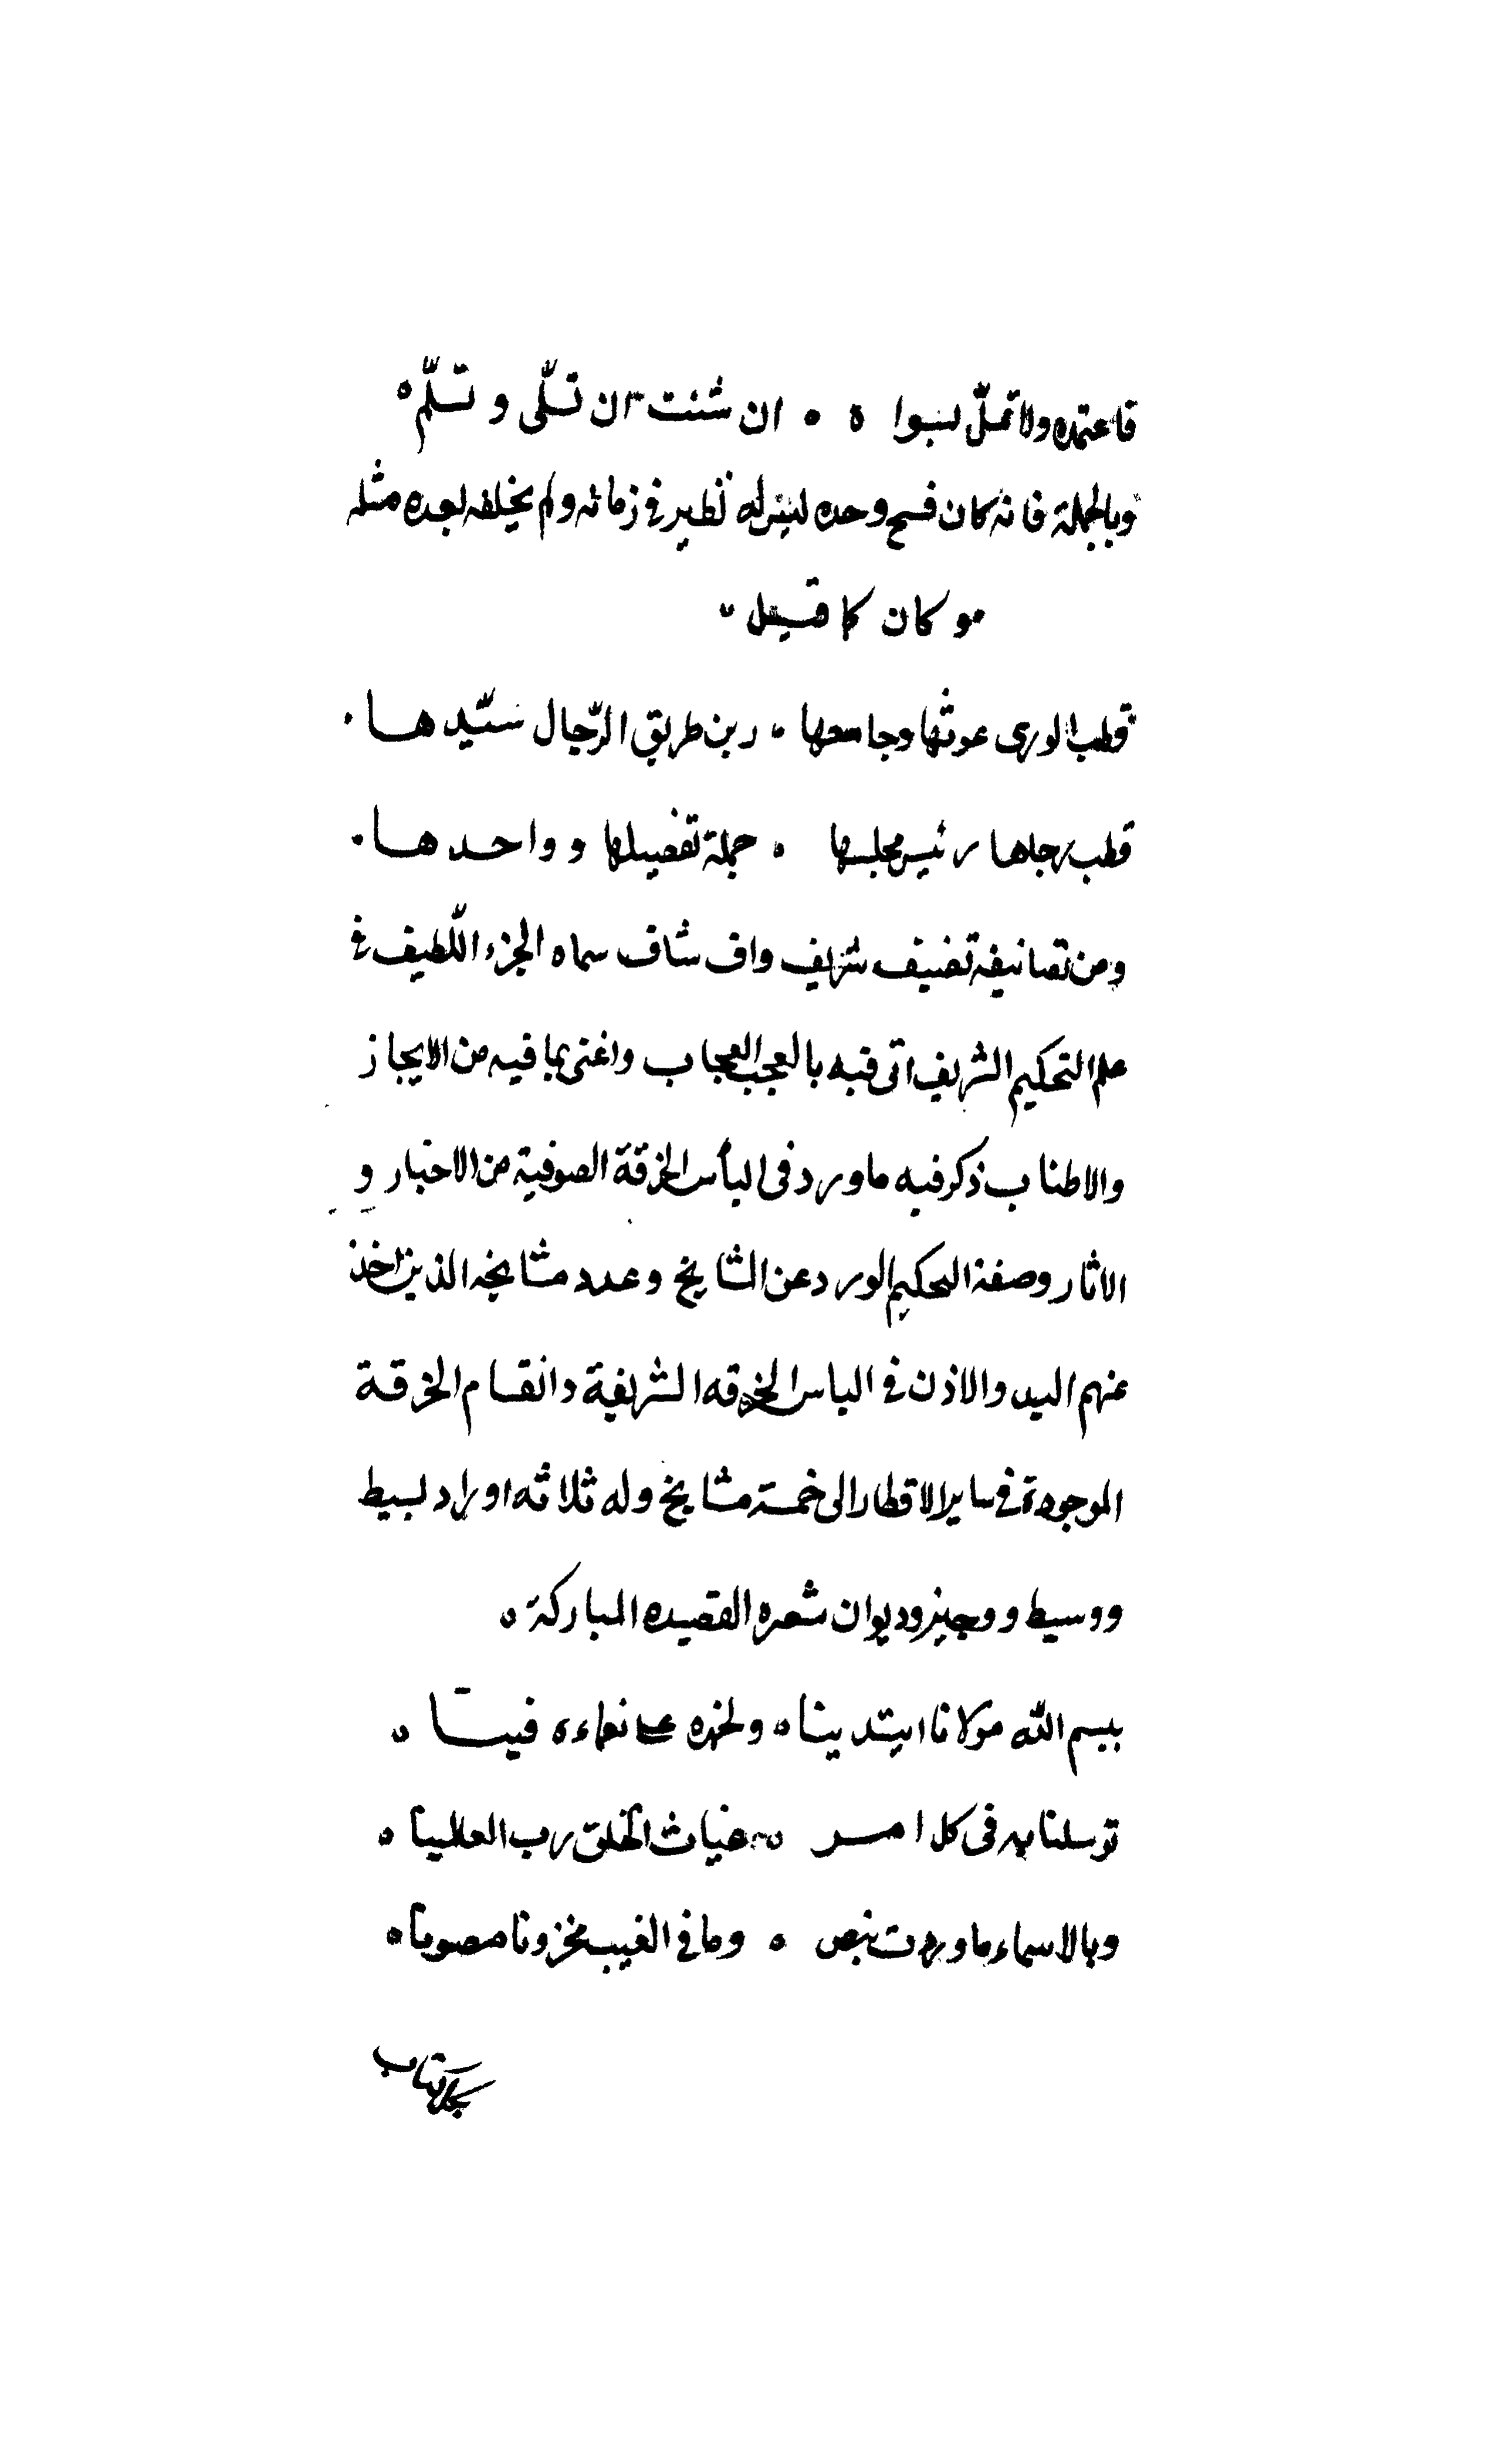 فاعتمده ولا تملّ لسوا ه ٠ ان شئت ان تلّى وتسلّم ه
وبالجملة فانه كان فسح وحده ليس له نظير في زمانه ولم يخلفه بعده مثله
وكان كما قيل
قطب الورى غوثها وجامعها ٠ دين طريق الرّجال سيّدها ٠
قطب رجاها رئيس مجلسها ٠ جملة تفضيلها وواحدها ٠
ومن تصانيفه تصنيف شريف واف شاف سماه الجزء اللّطيف في
علم التحكيم الشريف اتى فيه بالعجب العجاب واغنى بما فيه من الايجاز
والاطناب ذكر فيه ما ورد في الباس الخرقة الصوفية من الاخبار و
الاثار وصفة التحكيم الورد عن المشايخ وعدد مشايخه الذين اخذ
عنهم اليد والاذن في الباس الخرقه الشريفة وانقسام الخرقة
الموجودة في ساير الاقطار الى خمسة مشايخ وله ثلاثه اوراد بسيط
ووسيط ووجيز وديوان شعره القصيده المباركة ه
ببسم الله مولانا ابتدينا ه ونحمده على نعماءه فينا ه
توسلنا به في كل امر ه غياث الخلق رب العالمينا ه
وبالاسماء ما وردت بنص ه وما في الغيب مخزونا مصونا ه
بكل كتاب